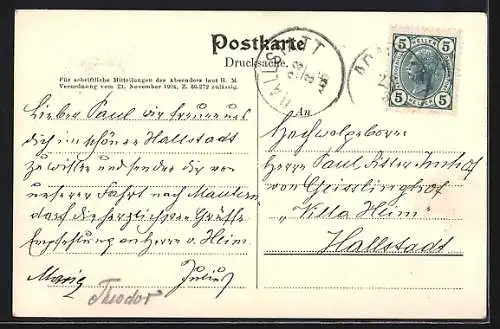 Postkarte
Drucksache.
Für schriftliche Mitteilungen des Absenders laut H. M.
Verordnung vom 21. November 1904, Z. 50.272 zulässig.
HALLSTATT
5 HELLER 5
5 HELLER 5
An
Lieber Paul wir freuen uns
dich im schönen Hallstadt
zu wissen und senden dir von
unserer Fahrt nach Mautern
dorf die herzlichsten Grüße
Empfehlung an Herrn v. Heim
Julius
Theodor
Hochwolgeboren
Herrn Paul Ritter Imhof
von Geisslinghof
"Villa Heim"
Hallstadt